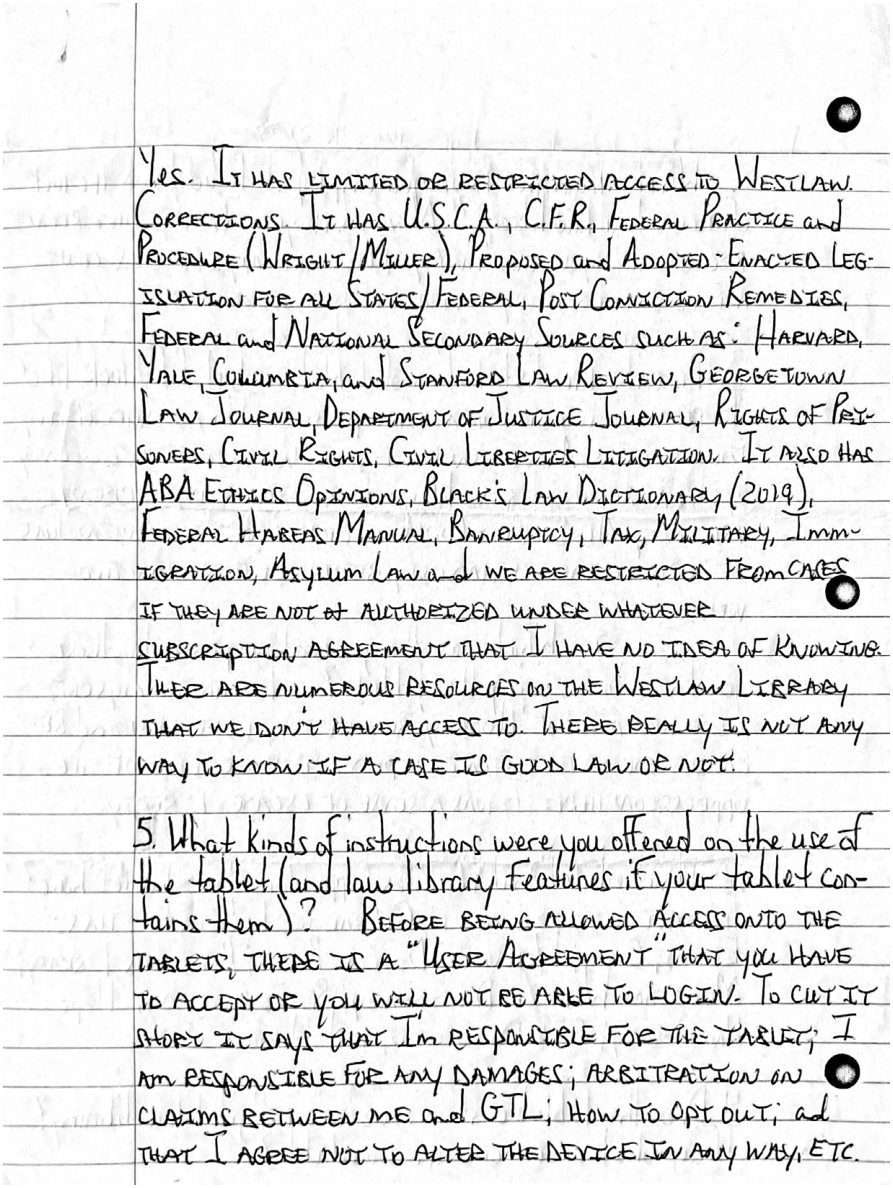 Yes. IT HAS LIMITED OR RESTRICTED ACCESS TO WESTLAW.
CORRECTIONS. IT HAS U.S.C.A., C.F.R., FEDERAL PRACTICE and
PROCEDURE (WRIGHT/MILLER), PROPOSED and ADOPTED-ENACTED LEG-
ISLATION FOR ALL STATES/FEDERAL, POST CONVICTION REMEDIES,
FEDERAL and NATIONAL SECONDARY SOURCES SUCH AS: HARVARD,
YALE, COLUMBIA, and STANFORD LAW REVIEW, GEORGETOWN
LAW JOURNAL, DEPARTMENT OF JUSTICE JOURNAL, RIGHTS OF PRI-
SONERS, CIVIL RIGHTS, CIVIL LIBERTIES LITIGATION. IT ALSO HAS
ABA ETHICS OPINIONS, BLACK'S LAW DICTIONARY (2019),
FEDERAL HABEAS MANUAL, BANRUPTCY, TAX, MILITARY, IMM-
IGRATION, ASYLUM LAW and WE ARE RESTRICTED FROM CASES
IF THEY ARE NOT AUTHORIZED UNDER WHATEVER
SUBSCRIPTION AGREEMENT THAT I HAVE NO IDEA OF KNOWING.
THER ARE NUMEROUS RESOURCES ON THE WESTLAW LIBRARY
THAT WE DON'T HAVE ACCESS TO. THERE REALLY IS NOT ANY
WAY TO KNOW IF A CASE IS GOOD LAW OR NOT.
5. What kinds of instructions were you offered on the use of
the tablet (and law library features if your tablet con-
tains them)? BEFORE BEING ALLOWED ACCESS ONTO THE
TABLETS, THERE IS A "USER AGREEMENT" THAT YOU HAVE
TO ACCEPT OR YOU WILL NOT BE ABLE TO LOGIN. TO CUT IT
SHORT IT SAYS THAT I'm RESPONSIBLE FOR THE TABLET; I
Am RESPONSIBLE FOR ANY DAMAGES; ARBITRATION ON
CLAIMS BETWEEN ME and GTL; HOW TO OPT OUT; ad
THAT I AGREE NOT TO ALTER THE DEVICE IN ANY WAY, ETC.